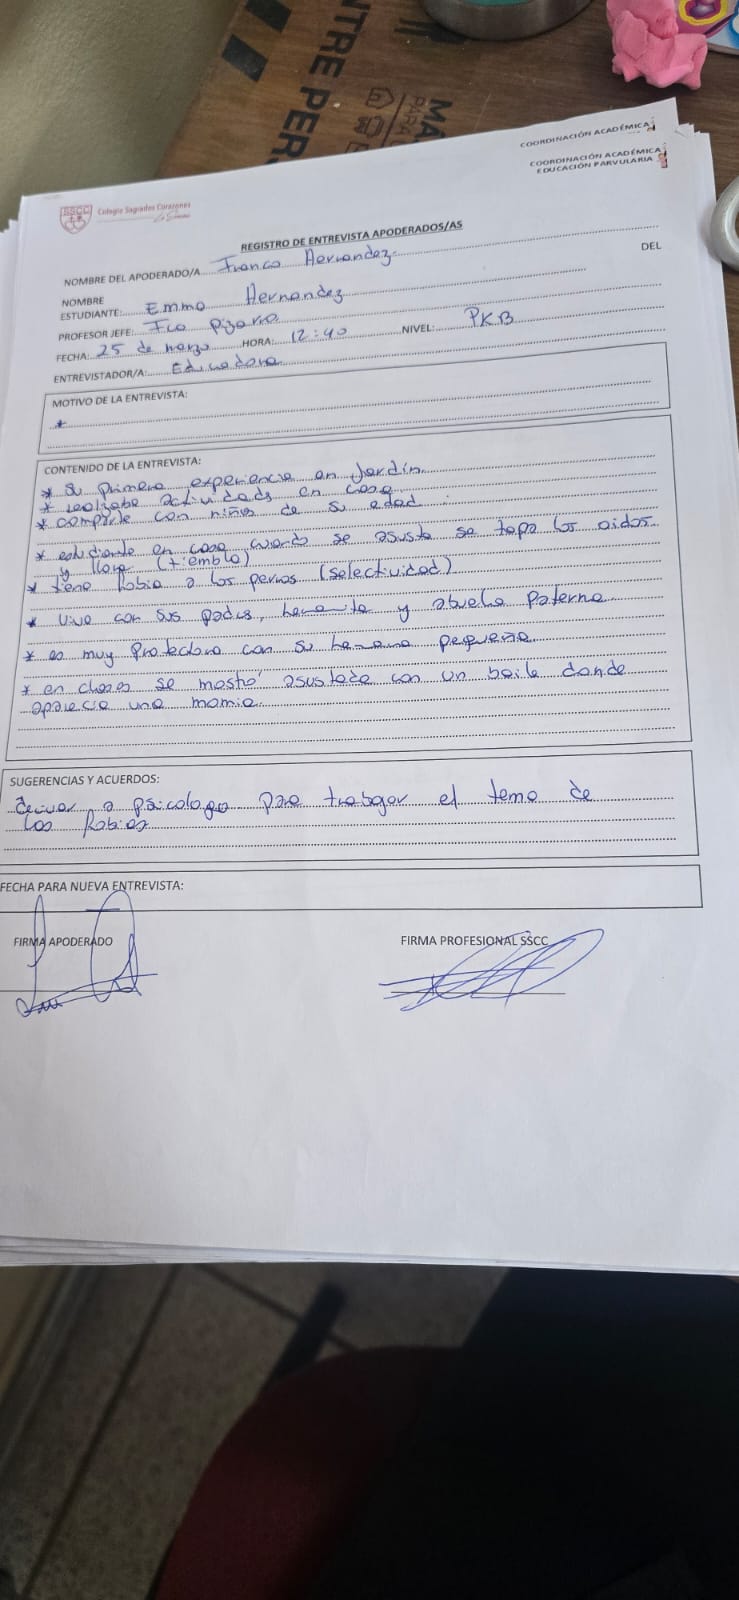 NTRE PER
MA
PARA
COORDINACIÓN ACADÉMICA
COORDINACIÓN ACADÉMICA
EDUCACIÓN PARVULARIA
SSCC
Colegio Sagrados Corazones
La Serena
REGISTRO DE ENTREVISTA APODERADOS/AS
NOMBRE DEL APODERADO/A Franco Hernandez
DEL
NOMBRE
ESTUDIANTE: Emma Hernandez
PROFESOR JEFE: Fca Pizarro
FECHA: 25 de marzo HORA: 12:40 NIVEL: PKB
ENTREVISTADOR/A: Educadora
MOTIVO DE LA ENTREVISTA:
*
CONTENIDO DE LA ENTREVISTA:
* Su primera experiencia en Jardín
* realizaba actividads en casa
* comparte con niños de su edad
* estudiante en casa cuando se asusta se tapa los oidos
y llora (tiembla)
* tiene fobia a los perros (selectividad)
* vive con sus padres, hermanita y abuela paterna
* es muy protectora con su hermana pequeña
* en clases se mostró asustada con un baile donde
aparecia una momia.
SUGERENCIAS Y ACUERDOS:
derivar a psicologo para trabajar el tema de
las fobias
FECHA PARA NUEVA ENTREVISTA:
FIRMA APODERADO
FIRMA PROFESIONAL SSCC